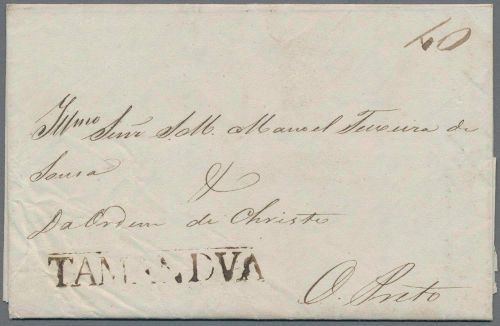 40
Illmo Snr S.M. Manoel Teixeira de
Sousa &
Da Ordem de Christo
TAMANDVA
O. Preto